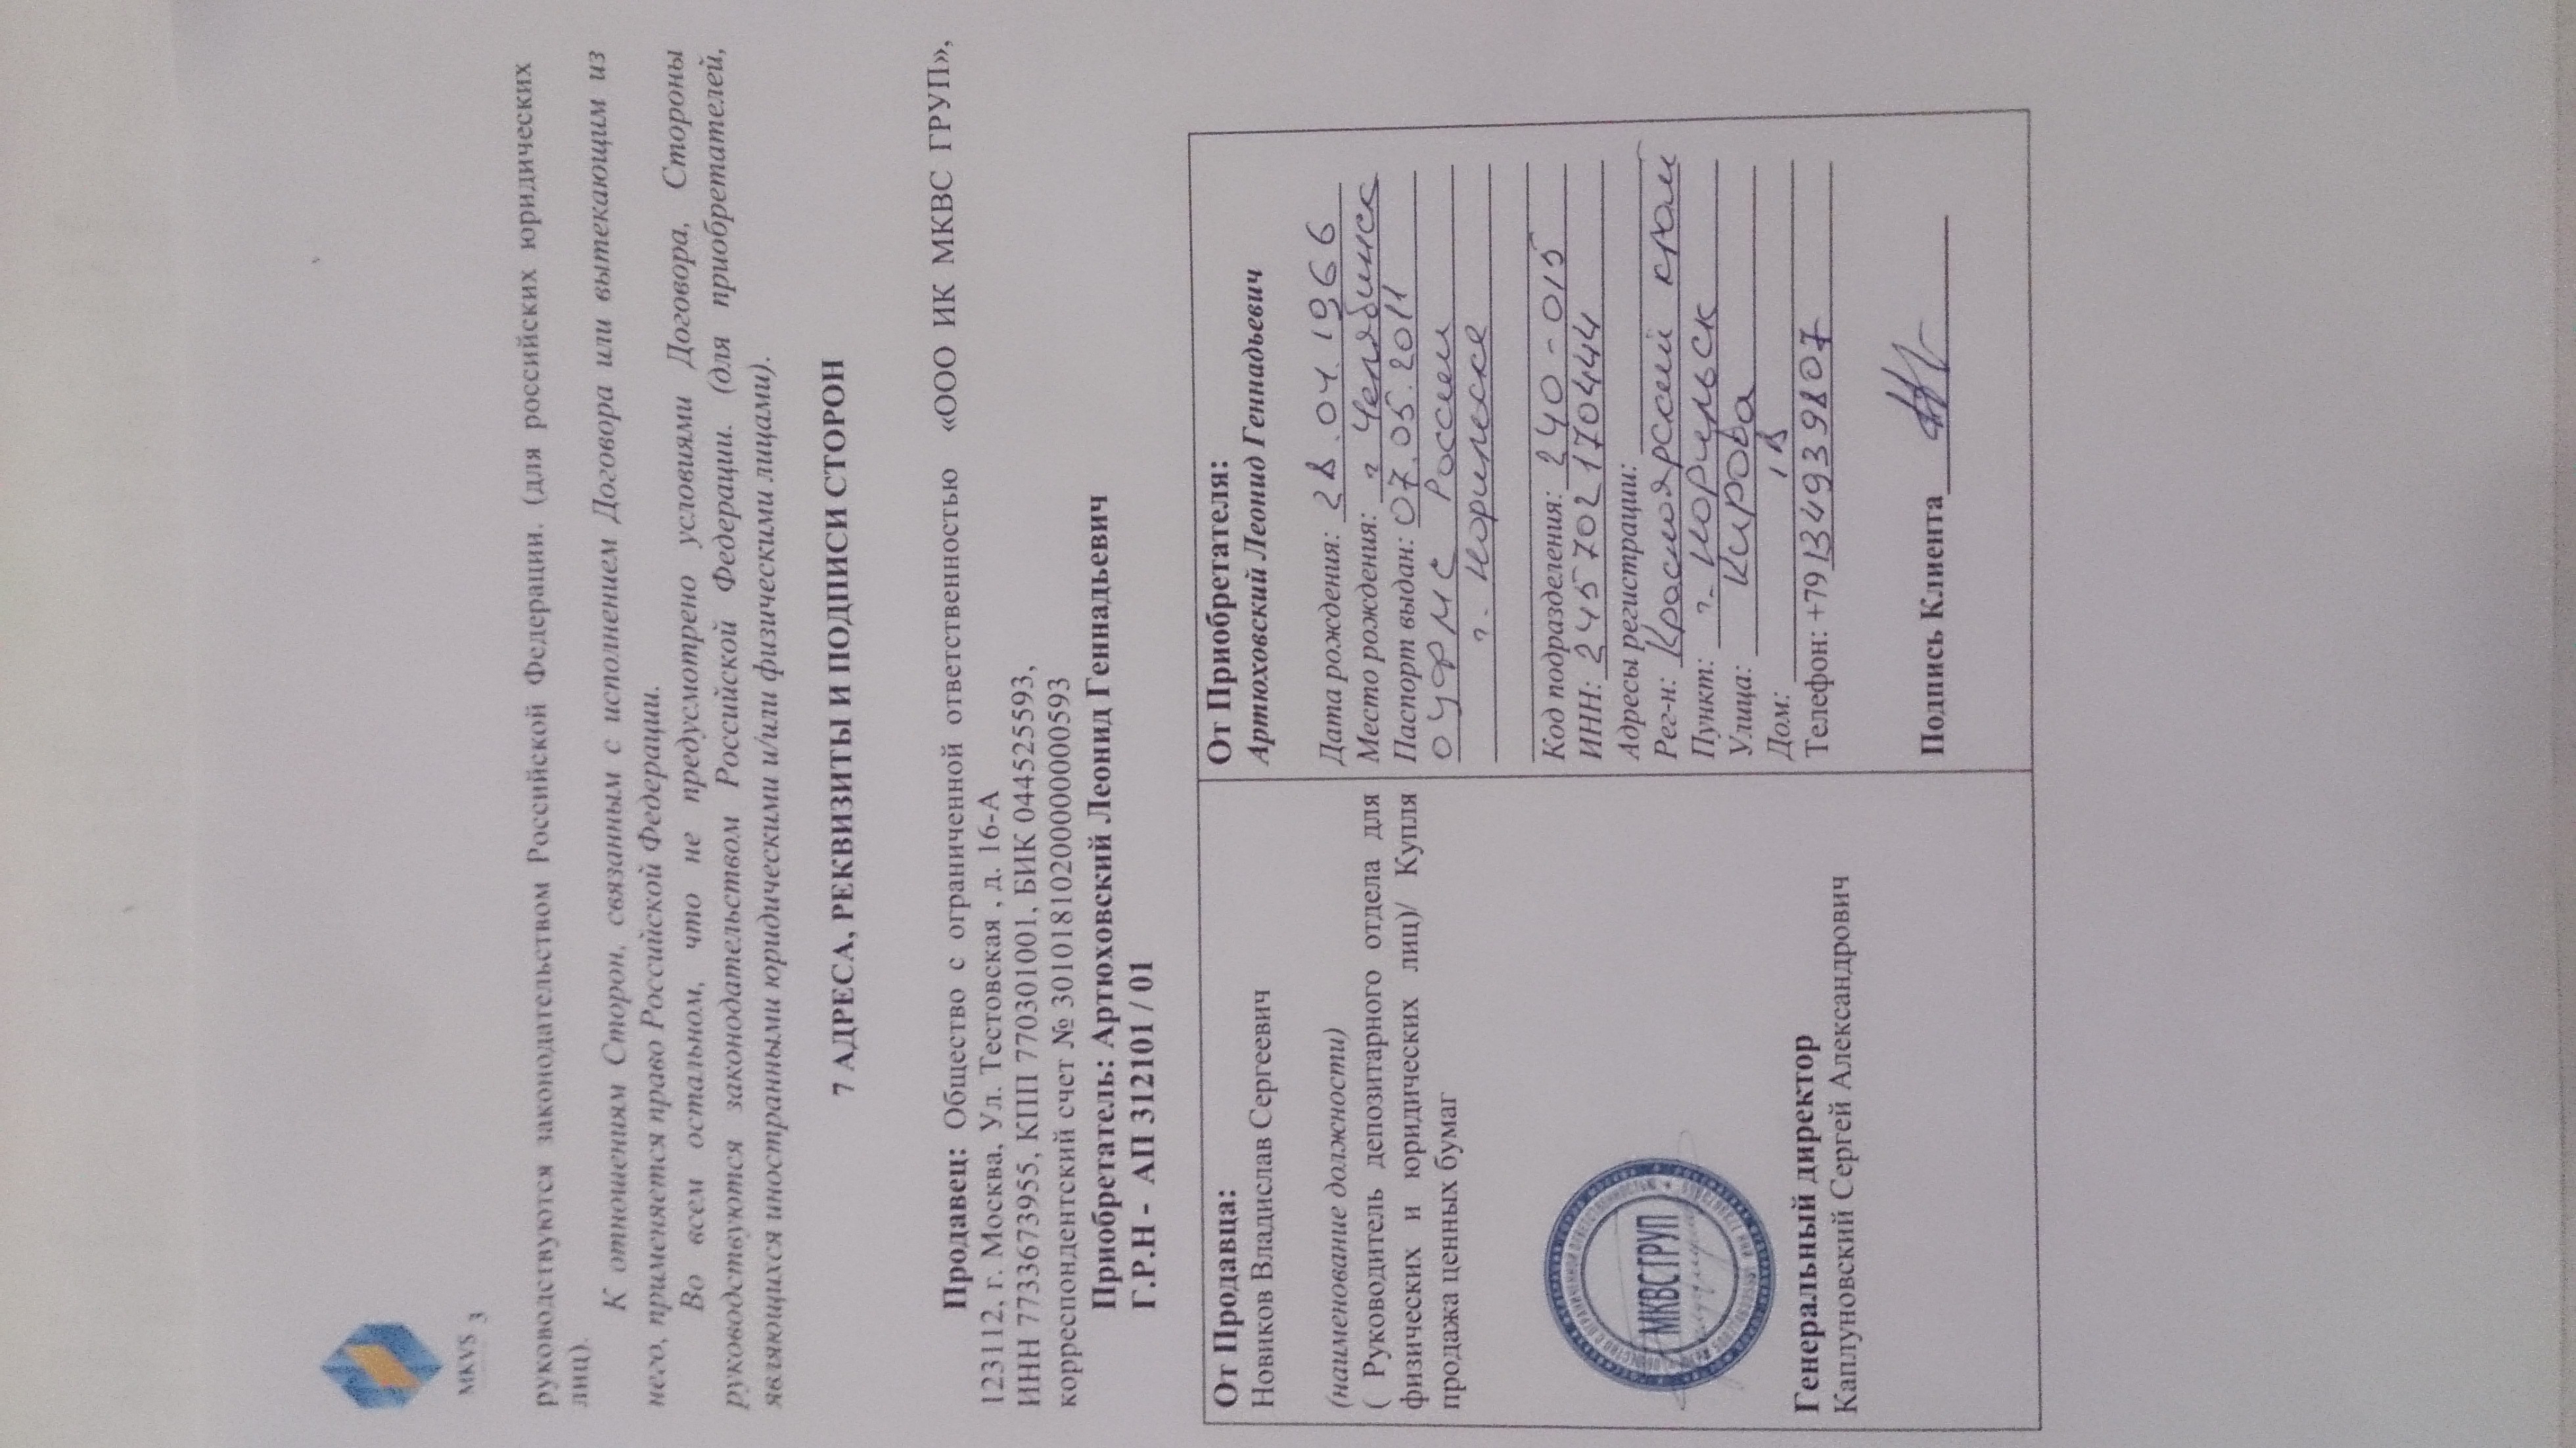 MKVS 3
руководствуются законодательством Российской Федерации. (для российских юридических
лиц).
К отношениям Сторон, связанным с исполнением Договора или вытекающим из
него, применяется право Российской Федерации.
Во всем остальном, что не предусмотрено условиями Договора, Стороны
руководствуются законодательством Российской Федерации. (для приобретателей,
являющихся иностранными юридическими и/или физическими лицами).
7 АДРЕСА, РЕКВИЗИТЫ И ПОДПИСИ СТОРОН
Продавец: Общество с ограниченной ответственностью «ООО ИК МКВС ГРУП»,
123112, г. Москва, Ул. Тестовская , д. 16-А
ИНН 7733673955, КПП 770301001, БИК 044525593,
корреспондентский счет № 30101810200000000593
Приобретатель: Артюховский Леонид Геннадьевич
Г.Р.Н - АП 312101 / 01
От Продавца:
Новиков Владислав Сергеевич
(наименование должности)
( Руководитель депозитарного отдела для
физических и юридических лиц)/ Купля
продажа ценных бумаг
МКВСГРУП
Генеральный директор
Каплуновский Сергей Александрович
От Приобретателя:
Артюховский Леонид Геннадьевич
Дата рождения: 28.04.1966
Место рождения: г Челябинск
Паспорт выдан: 07.05.2011
ОУФМС России
г. Норильске
Код подразделения: 240-015
ИНН: 245702170444
Адресы регистрации:
Рег-н: Красноярский край
Пункт: г. Норильск
Улица: Кирова
Дом: 18
Телефон: +79134939807
Подпись Клиента